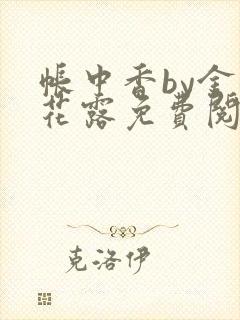 帐中香by金
花露免費閱
克洛伊